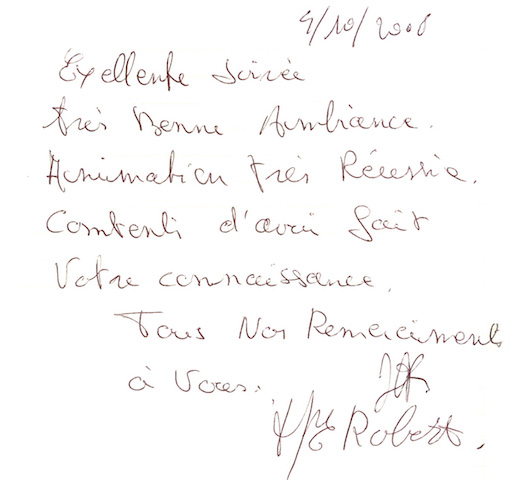 4/10/2006
Exellente soirée
très Bonne Ambiance.
Annimation très Réeussie.
Contents d'avoir fait
Votre connaissance.
Tous Nos Remerciments
à Vous.
Robert.